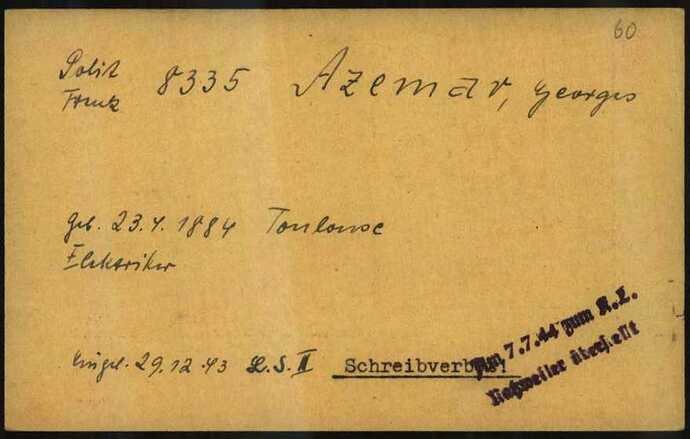 60
Polit 8335 Azemar, Georges
Franz
geb. 23.4.1884 Toulouse
Elektriker
eingel. 29.12.43 L.S.II Schreibverbot!
Am 7.7.44 zum K.L.
Natzweiler überstellt